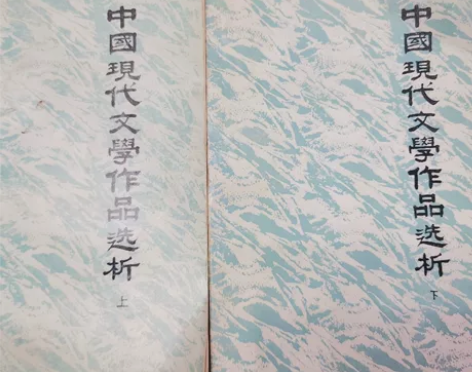 中國現代文學作品选析
上
中國現代文學作品选析
下